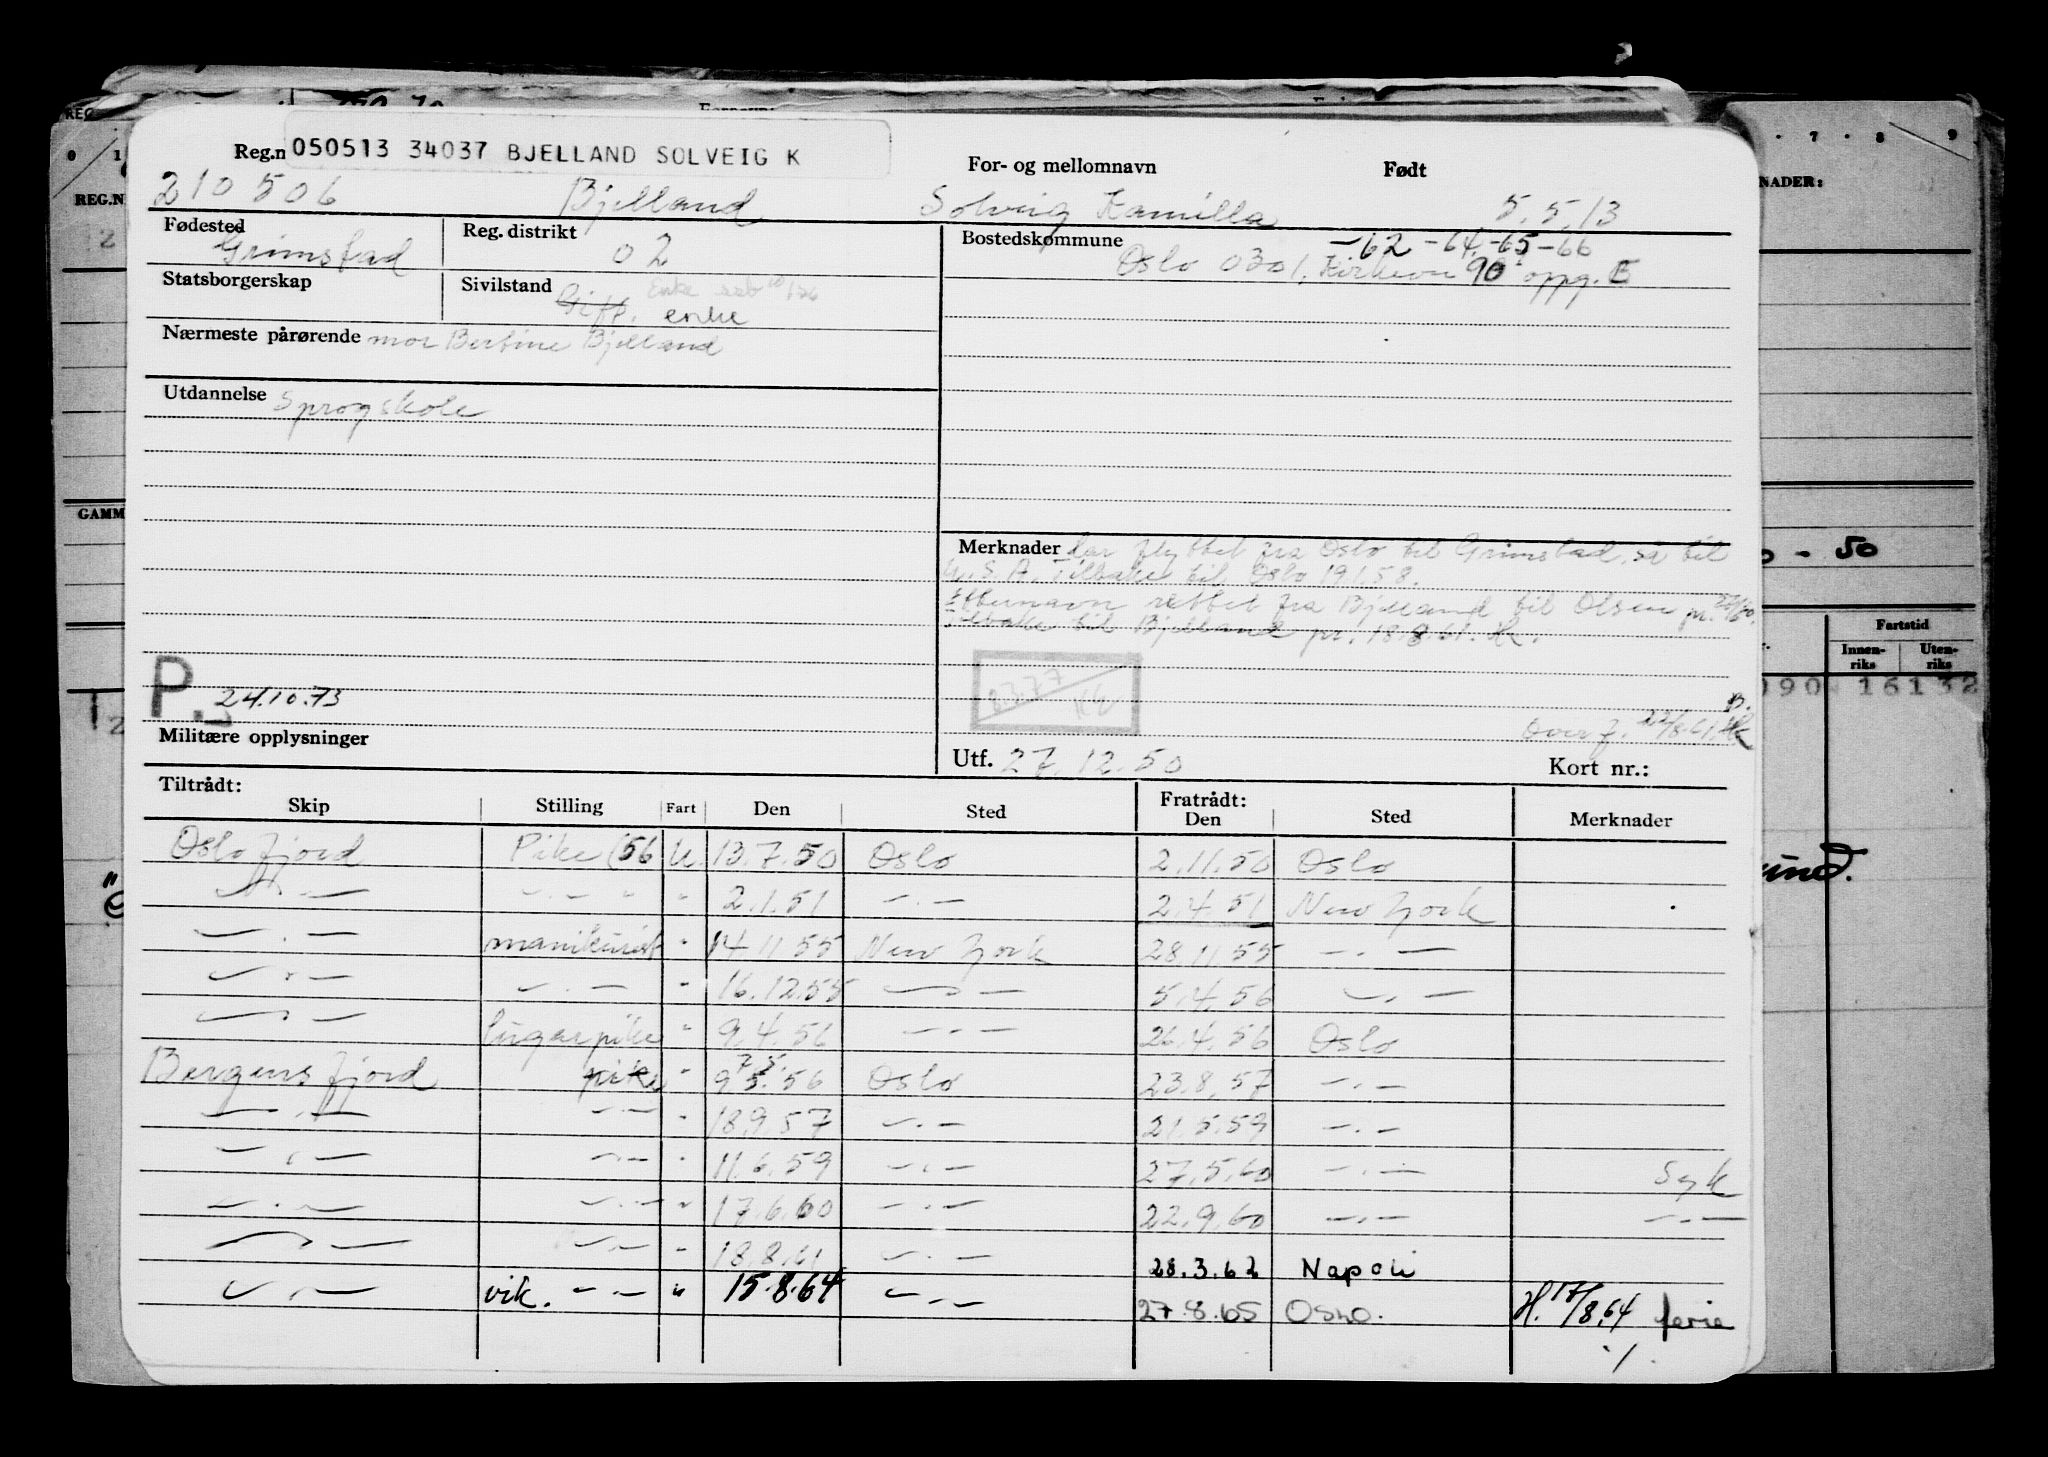 REG.
0 1
REG.N
GAMM
7 8 9
NADER:
- 50
Fartstid
Innen-riks Uten-riks
090 16132
Reg.n 050513 34037 BJELLAND SOLVEIG K For- og mellomnavn Født
210506 Bjelland Solveig Kamilla 5.5.13
Fødested Grimstad Reg. distrikt 02 Bostedskommune -62 -64-65-66
Oslo 0301, Kirkevn 90 oppg. E
Statsborgerskap Sivilstand Gift. enke
Nærmeste pårørende mor Bertine Bjelland
Utdannelse Sprogskole
Merknader har flyttet fra Oslo til Grimstad, så til
U.S.A. Tilbake til Oslo 19.1.58.
Etternavn rettet fra Bjelland til Olsen pr.
Tilbake til Bjelland pr. 18.8.61. Hk.
P. 24.10.73
Overf. 22/8.61. Hk
Militære opplysninger
Utf. 27.12.50 Kort nr.:
Tiltrådt: Fratrådt:
Skip Stilling Fart Den Sted Den Sted Merknader
Oslofjord Pike (56 U. 13.7.50 Oslo 2.11.50 Oslo
— . — — . — " " 2.1.51 — . — 2.4.51 New York
— . — manikurist " 14.11.55 New York 28.11.55 — . —
— . — — . — " 16.12.55 — . — 5.4.56 — . —
— . — lugarpike " 9.4.56 — . — 26.4.56 Oslo
Bergensfjord pike " 9.5.56 Oslo 23.8.57 — . —
— . — — . — " 18.9.57 — . — 21.5.59 — . —
— . — — . — " 11.6.59 — . — 27.5.60 — . — Syk
— . — — . — " 17.6.60 — . — 22.9.60 — . — — . —
— . — — . — " 18.8.61 — . — 28.3.62 Napoli
— . — vik. — . — " 15.8.64 — . — 27.8.65 Oslo. H. 17/8.64 ferie